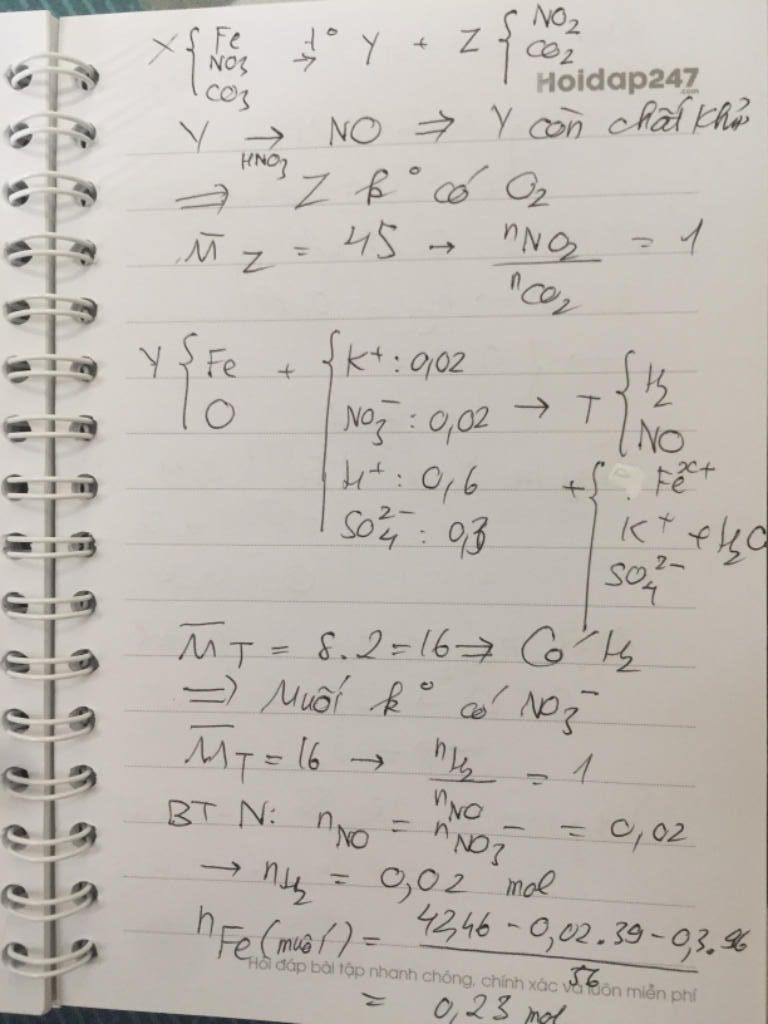 X { Fe NO3 CO3 t° → Y + Z { NO2 CO2
Hoidap247
.com
Y → HNO3 NO ⇒ Y còn chất khử
⇒ Z k° có O2
M̄ Z = 45 → nNO2 / nCO2 = 1
Y { Fe O + { K+ : 0,02 NO3- : 0,02 H+ : 0,6 SO4 2- : 0,3 → T { H2 NO
+ { Fe x+ K+ SO4 2- + H2O
M̄ T = 8.2 = 16 ⇒ Có H2
⇒ Muối k° có NO3-
M̄ T = 16 → nH2 / nNO = 1
BT N: nNO = nNO3- = 0,02
→ nH2 = 0,02 mol
nFe (muối) = 42,46 - 0,02.39 - 0,3.96 / 56
Hỏi đáp bài tập nhanh chóng, chính xác và luôn miễn phí
= 0,23 mol